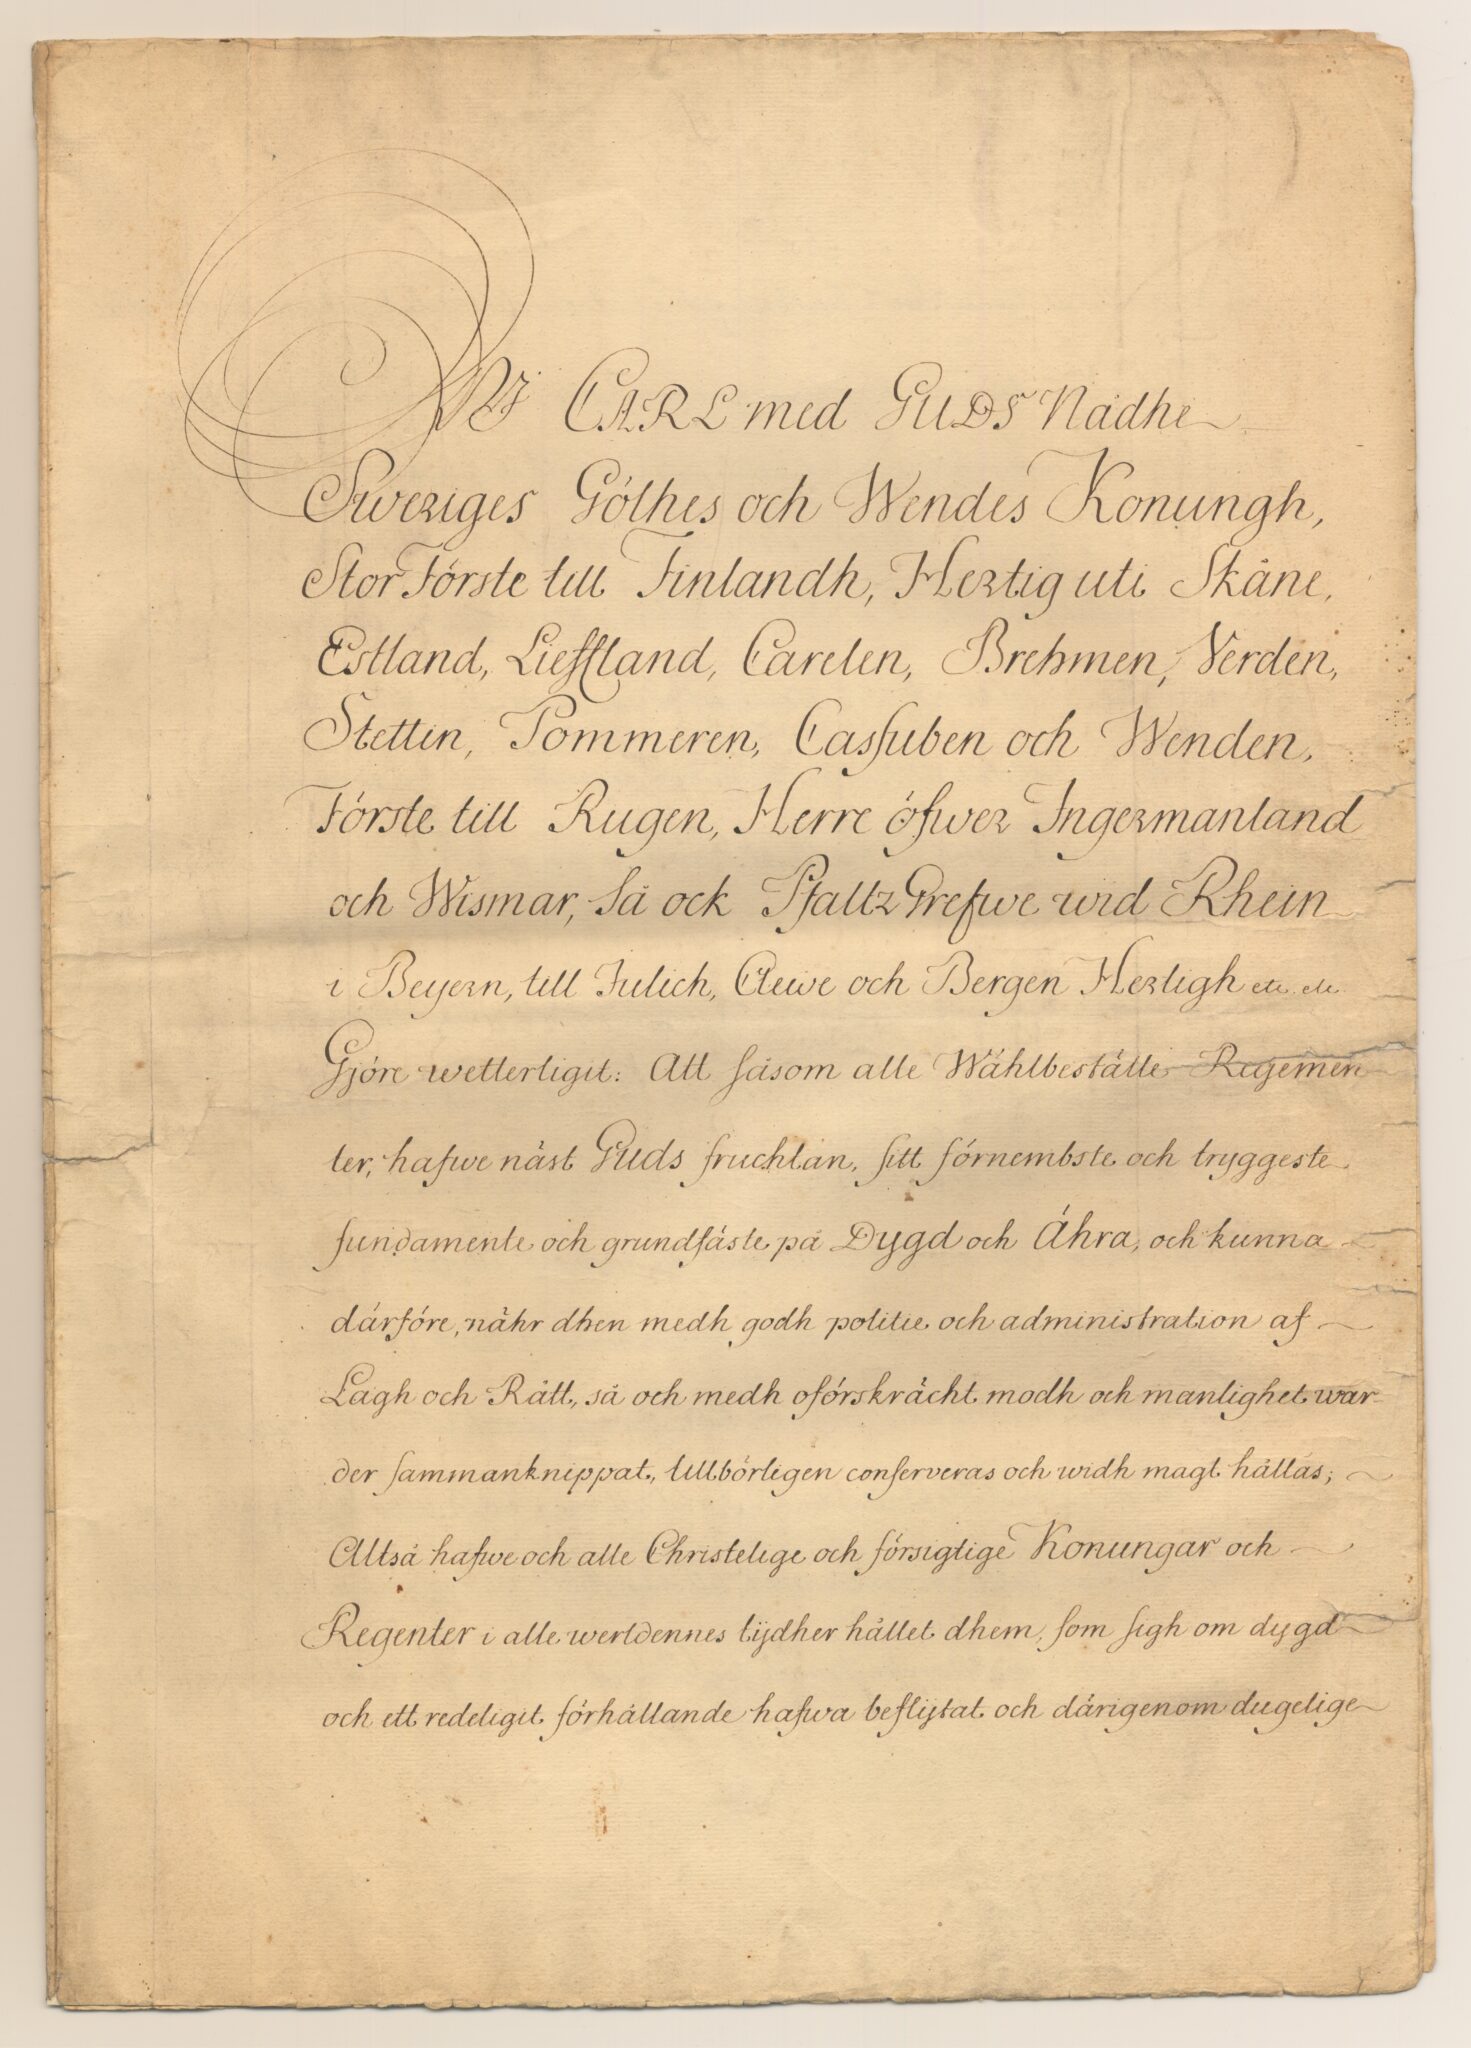 Wÿ CARL med GUDS Nådhe
Sweriges Göthes och Wendes Konungh,
Stor Förste till Finlandh, Hertig uti Skåne,
Estland, Liefland, Carelen, Brehmen, Verden,
Stettin, Pommeren, Cassuben och Wenden,
Förste till Rugen, Herre öfwer Ingermanland
och Wismar, så ock PfaltzGrefwe wid Rhein
i Beyern, till Julich, Clewe och Bergen Hertigh etc. etc.
Gjöre wetterligit: Att såsom alle Wählbestälte Regemen
ter, hafwe näst Guds fruchtan, sitt förnembste och tryggeste
fundamente och grundfäste på Dygd och Ähra, och kunna
därföre, nähr dhen medh godh politie och administration af
Lagh och Rätt, så och medh oförskrächt modh och manlighet war-
der sammanknippat, tillbörligen conserveras och widh magt hållas;
Altså hafwe och alle Christelige och försigtige Konungar och
Regenter i alle werldennes tijdher hållet dhem, som sigh om dygd
och ett redeligit förhållande hafwa beflijtat och därigenom dugelige